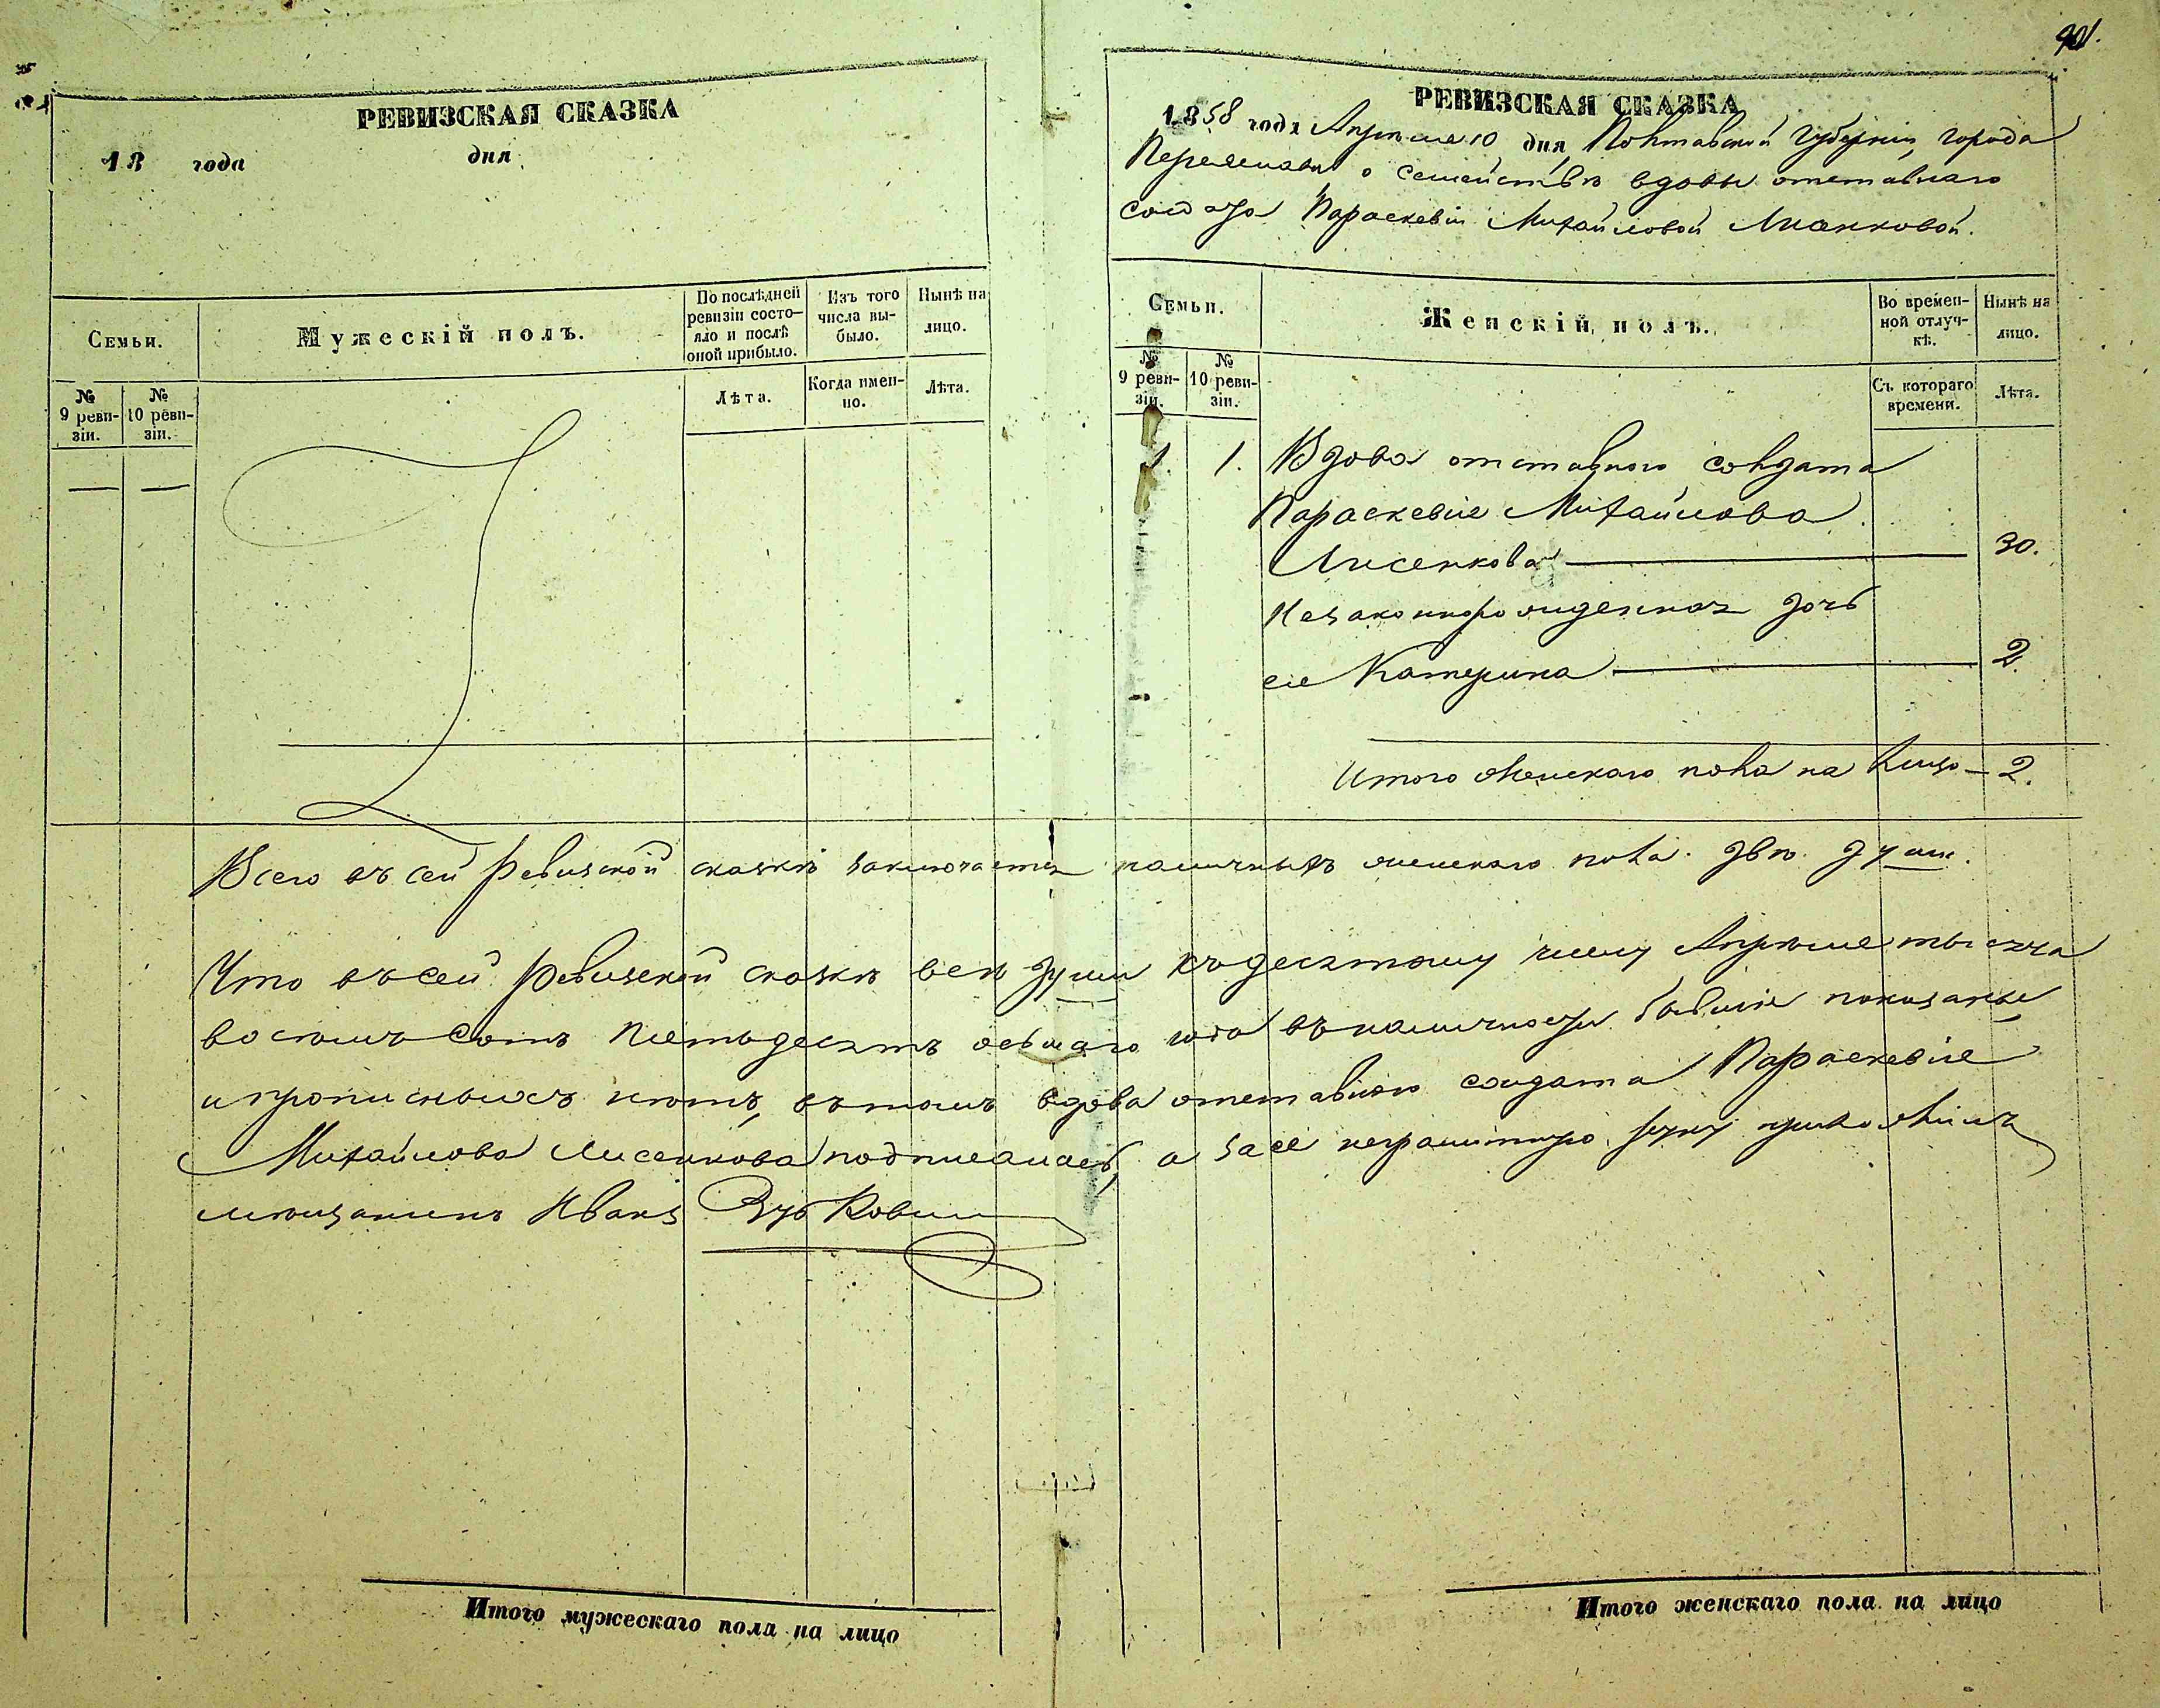 901.
РЕВИЗСКАЯ СКАЗКА
18 года дня
Семьи.
Мужескій полъ.
По послѣдней ревизіи состояло и послѣ оной прибыло.
Изъ того числа выбыло.
Нынѣ на лицо.
№ 9 ревизіи.
№ 10 ревизіи.
Лѣта.
Когда именно.
Лѣта.
РЕВИЗСКАЯ СКАЗКА
1858 года Апрѣля 10 дня Полтавской Губерніи, города
Переяслава о семействѣ вдовы отставнаго
солдата Параскевіи Михайловой Лисенковой.
Семьи.
Женскій полъ.
Во временной отлучкѣ.
Нынѣ на лицо.
№ 9 ревизіи.
№ 10 ревизіи.
Съ котораго времени.
Лѣта.
1. 1. Вдова отставного солдата
Параскевія Михайлова
Лисенкова 30.
Незаконнорожденная дочь
ея Катерина 2.
Итого женскаго пола на лицо – 2.
Всего въ сей ревизской сказкѣ заключается наличныхъ женскаго пола двѣ душ.
Что въ сей ревизской сказкѣ всѣ души къ десятому числу Апрѣля тысяча
восемь сотъ пятьдесятъ осьмаго года въ наличности бывшія показаны
и прописныхъ нѣтъ, въ томъ вдова отставного солдата Параскевія
Михайлова Лисенкова подписалась, а за ее неграмотную руку приложилъ
мѣщанинъ Иванъ
Итого мужескаго пола на лицо
Итого женскаго пола на лицо